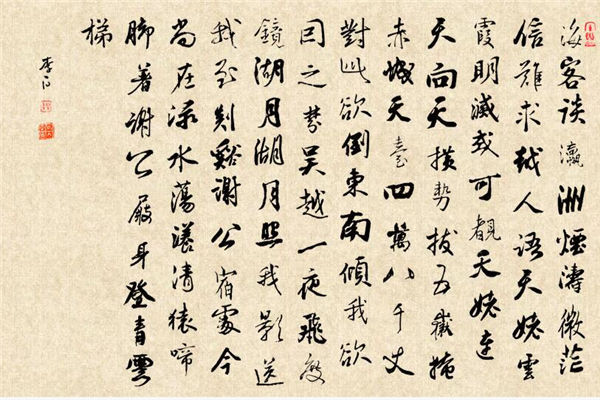 海客談瀛洲煙濤微茫
信難求越人語天姥雲
霞明滅或可覩天姥連
天向天橫勢拔五嶽掩
赤城天臺四萬八千丈
對此欲倒東南傾我欲
因之夢吳越一夜飛度
鏡湖月湖月照我影送
我至剡谿謝公宿處今
尚在淥水蕩漾清猿啼
腳著謝公屐身登青雲
梯
李白